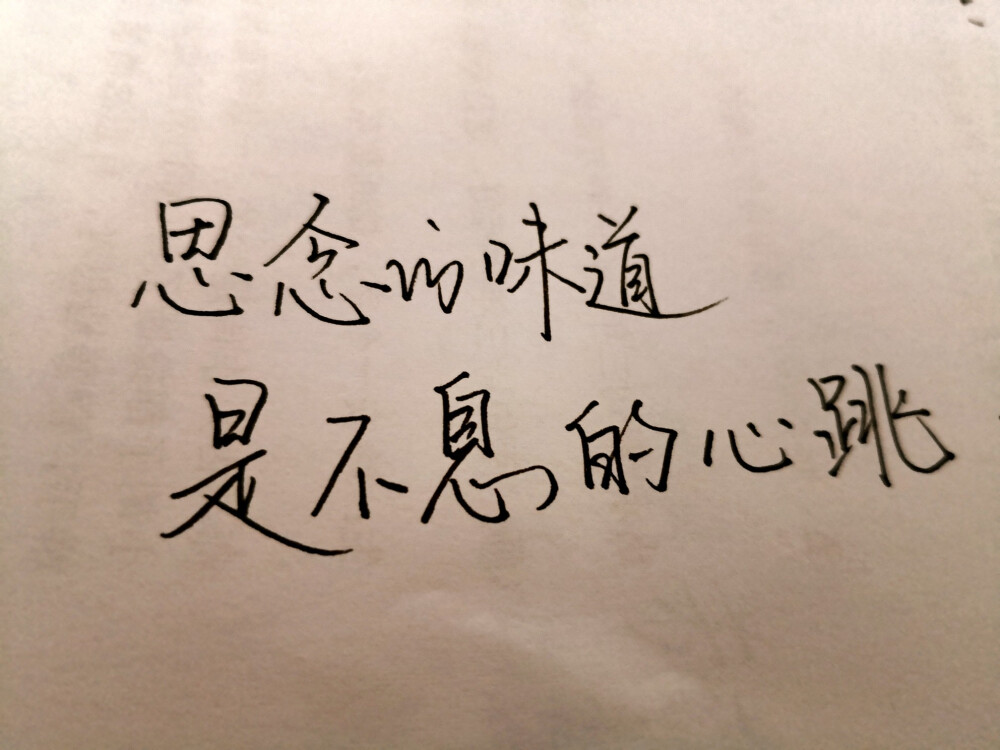 思念的味道
是不息的心跳